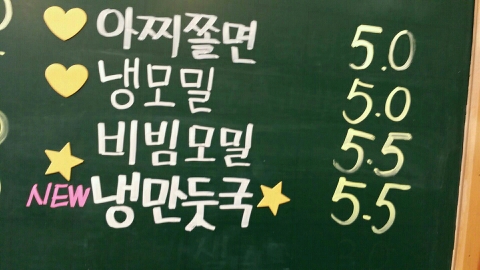 아찌쫄면 5.0
냉모밀 5.0
비빔모밀 5.5
NEW 냉만둣국 5.5